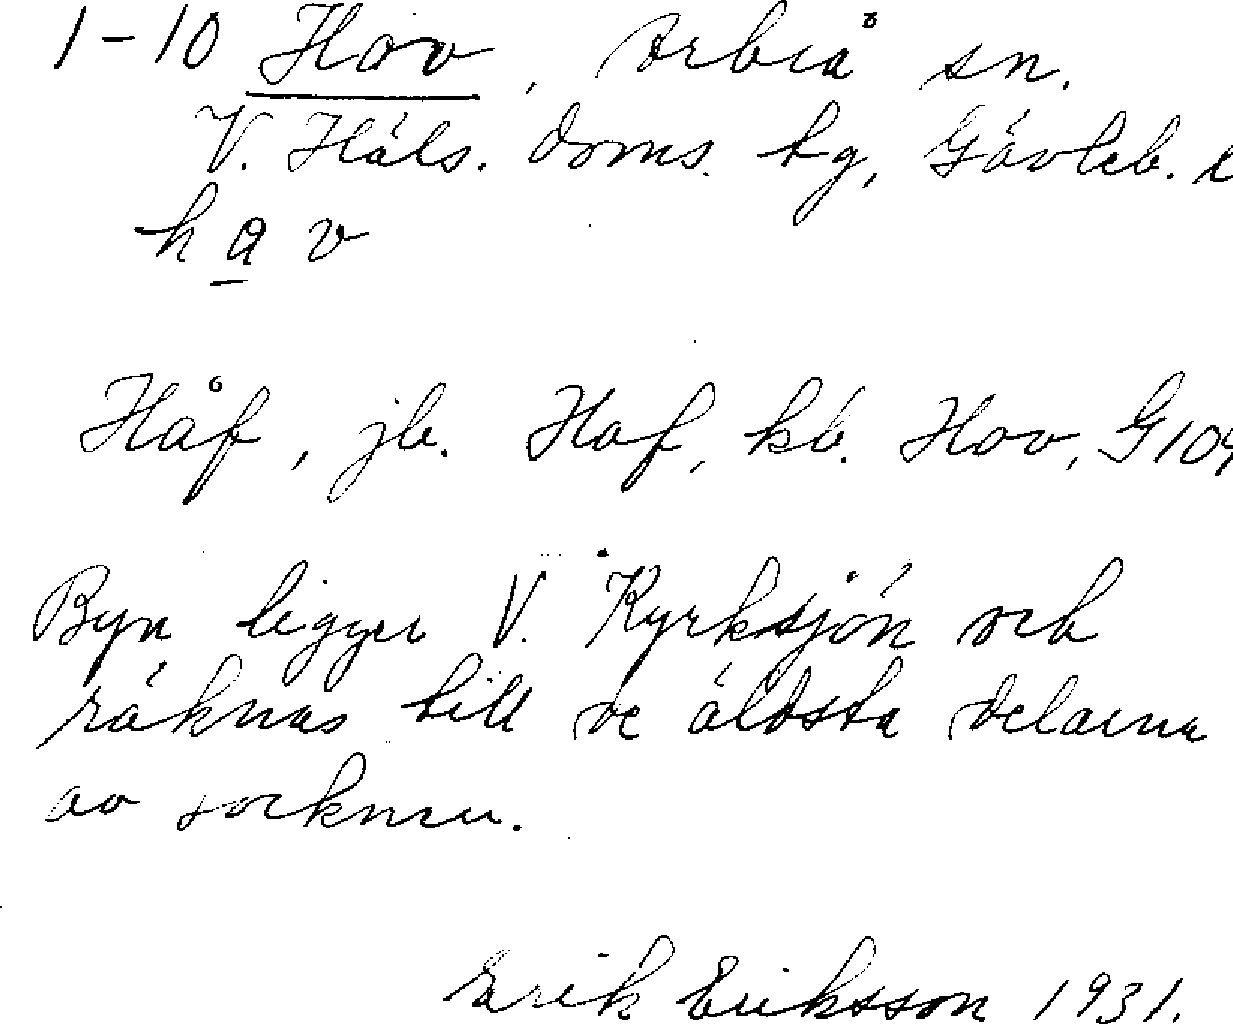 1-10 Hov, Arbrå sn.
V. Häls. doms. tg, Gävleb. l
h a v
Håf, jb. Hof, kb. Hov, G 104
Byn ligger V. Kyrksjön och
räknas till de äldsta delarna
av socknen.
Erik Eriksson 1931.